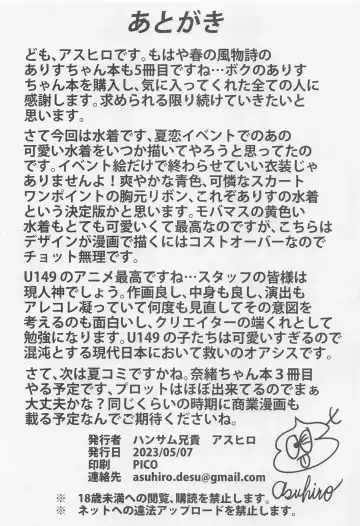 あとがき
ども、アスヒロです。もはや春の風物詩の
ありすちゃん本も5冊目ですね…ボクのありす
ちゃん本を購入し、気に入ってくれた全ての人に
感謝します。求められる限り続けていきたいと
思います。
さて今回は水着です、夏恋イベントでのあの
可愛い水着をいつか描いてやろうと思ってたの
です。イベント絵だけで終わらせていい衣装じゃ
ありませんよ！爽やかな青色、可憐なスカート
ワンポイントの胸元リボン、これぞありすの水着
という決定版かと思います。モバマスの黄色い
水着もとても可愛いくて最高なのですが、こちらは
デザインが漫画で描くにはコストオーバーなので
チョット無理です。
U149のアニメ最高ですね…スタッフの皆様は
現人神でしょう。作画良し、中身も良し、演出も
アレコレ凝っていて何度も見直してその意図を
考えるのも面白いし、クリエイターの端くれとして
勉強になります。U149の子たちは可愛いすぎるので
混沌とする現代日本において救いのオアシスです。
さて、次は夏コミですかね。奈緒ちゃん本3冊目
やる予定です、プロットはほぼ出来てるのでまぁ
大丈夫かな？同じくらいの時期に商業漫画も
載る予定なんでご期待くださいね。
発行者 ハンサム兄貴 アスヒロ
発行日 2023/05/07
印刷 PICO
連絡先 asuhiro.desu@gmail.com
asuhiro
※ 18歳未満への閲覧、購読を禁止します。
※ ネットへの違法アップロードを禁止します。